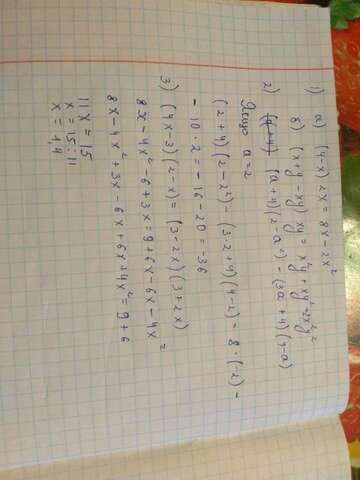 1) а) (4-x) 2x = 8x - 2x²
б) (x+y-xy) xy = x²y + xy² - x²y²
2) (a+4) (2-a²) - (3a+4) (4-a)
Якщо a=2
(2+4) (2-2²) - (3·2+4) (4-2) = 8·(-2) -
- 10·2 = -16-20 = -36
3) (4x-3) (2-x) = (3-2x) (3+2x)
8x - 4x² - 6 + 3x = 9 + 6x - 6x - 4x²
8x - 4x² + 3x - 6x + 6x + 4x² = 9 + 6
11x = 15
x = 15:11
x = 1,4